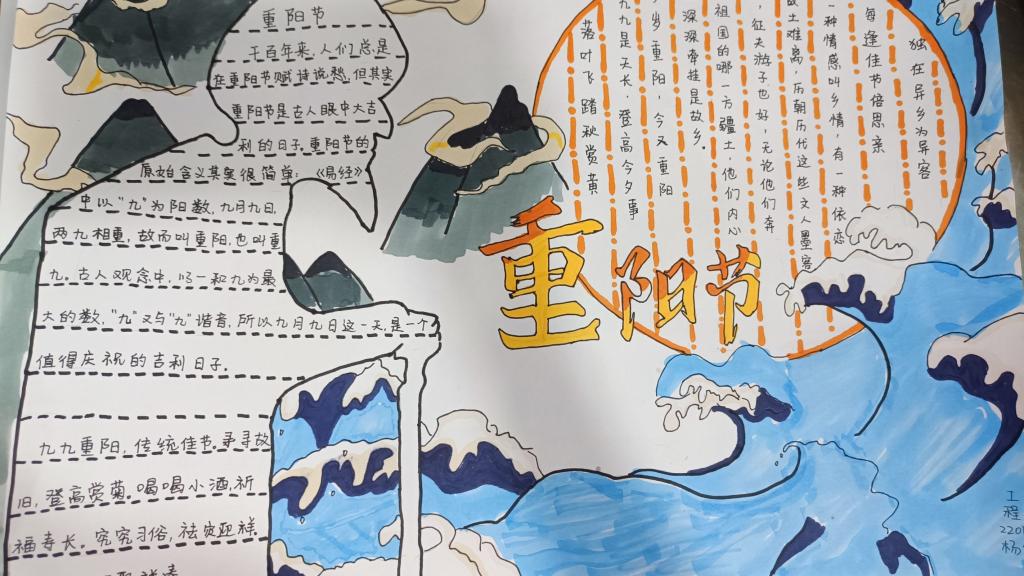 重阳节
千百年来，人们总是
在重阳节赋诗说愁，但其实
重阳节是古人眼中大吉
利的日子，重阳节的
原始含义其实很简单：《易经》
中以“九”为阳数，九月九日，
两九相重，故而叫重阳，也叫重
九。古人观念中，以一和九为最
大的数，“九”又与“九”谐音，所以九月九日这一天，是一个
值得庆祝的吉利日子。
九九重阳，传统佳节，寻寻故
旧，登高赏菊。喝喝小酒，祈
福寿长，究究习俗，祛灾迎祥
独在异乡为异客
每逢佳节倍思亲
一种情感叫乡情，有一种依恋
故土难离，历朝历代这些文人墨客
，征夫游子也好，无论他们奔
祖国的哪一方疆土，他们内心
深深牵挂是故乡。
岁岁重阳，今又重阳
九九是天长，登高今夕事
落叶飞，踏秋赏黄
重阳节
工程
220
杨